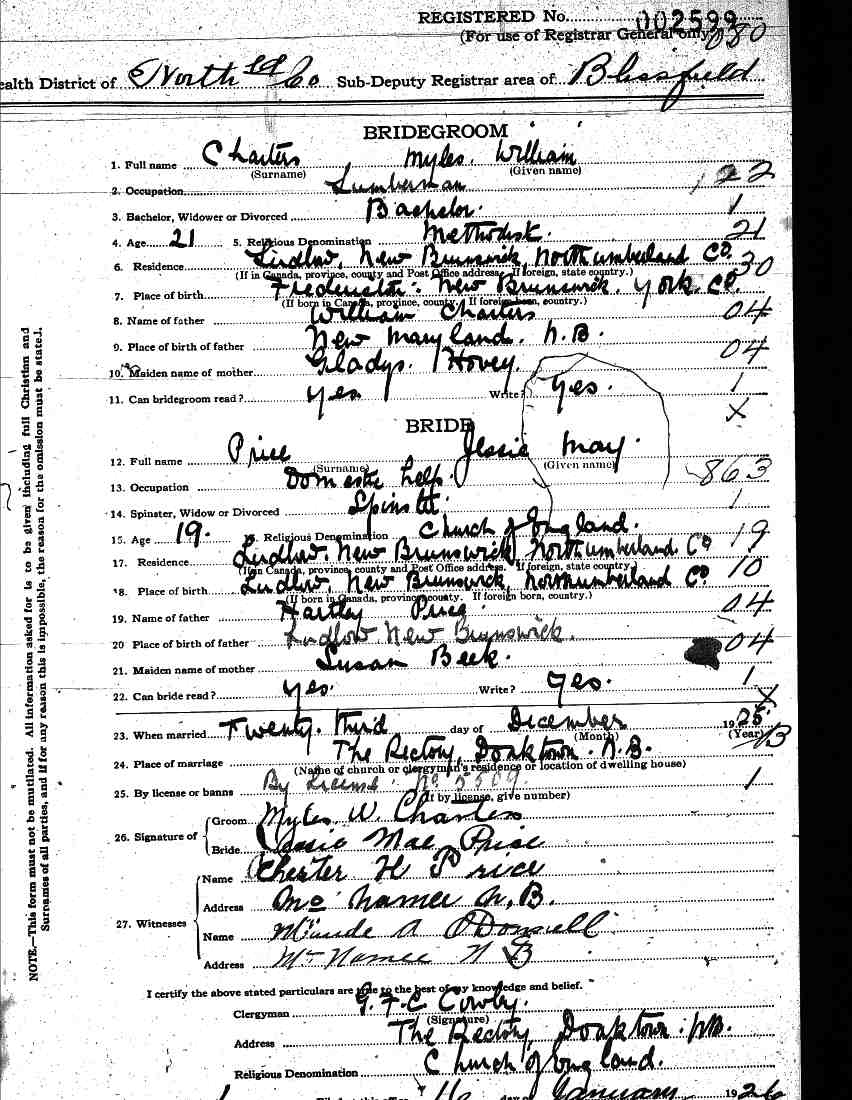 REGISTERED No. 002599
(For use of Registrar General only) 080
ealth District of North'ld Co Sub-Deputy Registrar area of Blissfield
BRIDEGROOM
1. Full name Charters Myles William
(Surname) (Given name)
2. Occupation Lumberman 22
3. Bachelor, Widower or Divorced Bachelor. 1
4. Age 21 5. Religious Denomination Methodist. 21
6. Residence Ludlow, New Brunswick, Northumberland Co. 30
(If in Canada, province, county and Post Office address. If foreign, state country.)
7. Place of birth Fredericton. New Brunswick. York Co.
(If born in Canada, province, county. If foreign born, country.)
8. Name of father William Charters 04
9. Place of birth of father New Maryland. N.B. 04
10. Maiden name of mother Gladys. Hovey. 1
11. Can bridegroom read? yes. Write? yes. X
BRIDE
12. Full name Price Jessie May.
(Surname) (Given name) 863
13. Occupation Domestic help.
14. Spinster, Widow or Divorced Spinster. 1
15. Age 19. Religious Denomination Church of England. 19
17. Residence Ludlow. New Brunswick, Northumberland Co 10
(If in Canada, province, county and Post Office address. If foreign, state country)
18. Place of birth Ludlow, New Brunswick, Northumberland Co.
(If born in Canada, province county. If foreign born, country.)
19. Name of father Hartley Price 04
20 Place of birth of father Ludlow New Brunswick. 04
21. Maiden name of mother Susan Beek.
22. Can bride read? yes. Write? yes. 1 X
23. When married Twenty. third day of December 1925
(Month) (Year)
24. Place of marriage The Rectory, Doaktown. N.B. 13
(Name of church or clergyman's residence or location of dwelling house)
25. By license or banns By License. No 5809 1
(If by license, give number)
26. Signature of Groom Myles W. Charters
Bride Jessie Mae Price
27. Witnesses Name Chester H Price
Address Mc Namee N.B.
Name Maude A O'Donnell
Address Mc Namee N B
I certify the above stated particulars are true to the best of my knowledge and belief.
Clergyman G. F. C Cowley.
(Signature)
Address The Rectory, Doaktown. N.B.
Religious Denomination Church of England.
16 day of January 1926
NOTE.—This form must not be mutilated. All information asked for is to be given including full Christian and
Surnames of all parties, and if for any reason this is impossible, the reason for the omission must be stated.